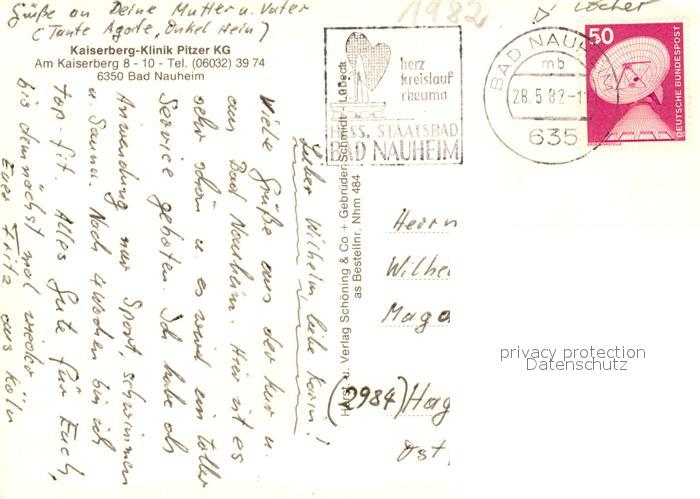 Grüße an Deine Mutter u. Vater
(Tante Agate, Onkel Hein)
1982
Löcher
Kaiserberg-Klinik Pitzer KG
Am Kaiserberg 8 - 10 - Tel. (06032) 39 74
6350 Bad Nauheim
Lieber Wilhelm, liebe Karin!
Viele Grüße aus der Kur u.
aus Bad Nauheim. Hier ist es
sehr schön u. es wird ein toller
Service geboten. Ich habe als
Anwendung nur Sport, schwimmen
u. Sauna. Noch 4 Wochen bin ich
top-fit. Alles Gute für Euch,
bis demnächst mal wieder
Euer Fritz aus Köln
Verlag Schöning & Co + Gebrüder Schmidt · Lübeck
as Bestellnr. Nhm 484
herz
kreislauf
rheuma
HESS. STAATSBAD
BAD NAUHEIM
BAD NAUH
mb
28.5.82-1
635
50
DEUTSCHE BUNDESPOST
Herrn
Wilhe
Mago
(2984) Hag
Ost
privacy protection
Datenschutz